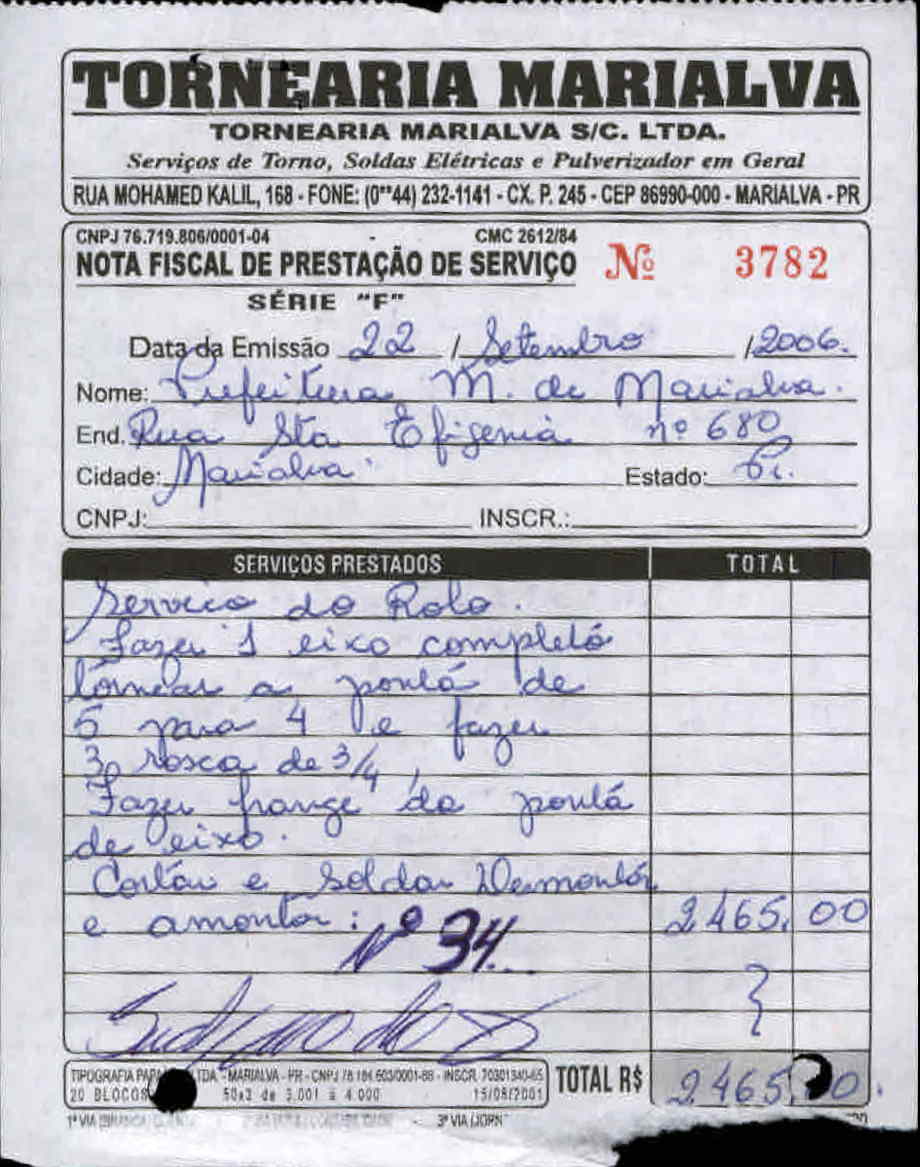 TORNEARIA MARIALVA
TORNEARIA MARIALVA S/C. LTDA.
Serviços de Torno, Soldas Elétricas e Pulverizador em Geral
RUA MOHAMED KALIL, 168 - FONE: (0**44) 232-1141 - CX. P. 245 - CEP 86990-000 - MARIALVA - PR
CNPJ 76.719.806/0001-04 CMC 2612/84
NOTA FISCAL DE PRESTAÇÃO DE SERVIÇO Nº 3782
SÉRIE "F"
Data da Emissão 22 / Setembro / 2006.
Nome: Prefeitura M. de Marialva.
End. Rua Sta Efigenia nº 680
Cidade: Marialva Estado: Pr.
CNPJ: INSCR.:
SERVIÇOS PRESTADOS TOTAL
Servico do Rolo.
Fazer 1 eixo completo
tornear a ponta de
5 para 4 e fazer
3 rosca de 3/4,
Fazer frange da ponta
de eixo.
Cortar e soldar Desmontar
e amontar: 2.465,00
Nº 34
TIPOGRAFIA LTDA - MARIALVA - PR - CNPJ INSCR. 70301340-65
20 BLOCOS 50x3 de 3.001 à 4.000 15/08/2001
TOTAL R$ 2.465, 0.
1ª VIA 3ª VIA